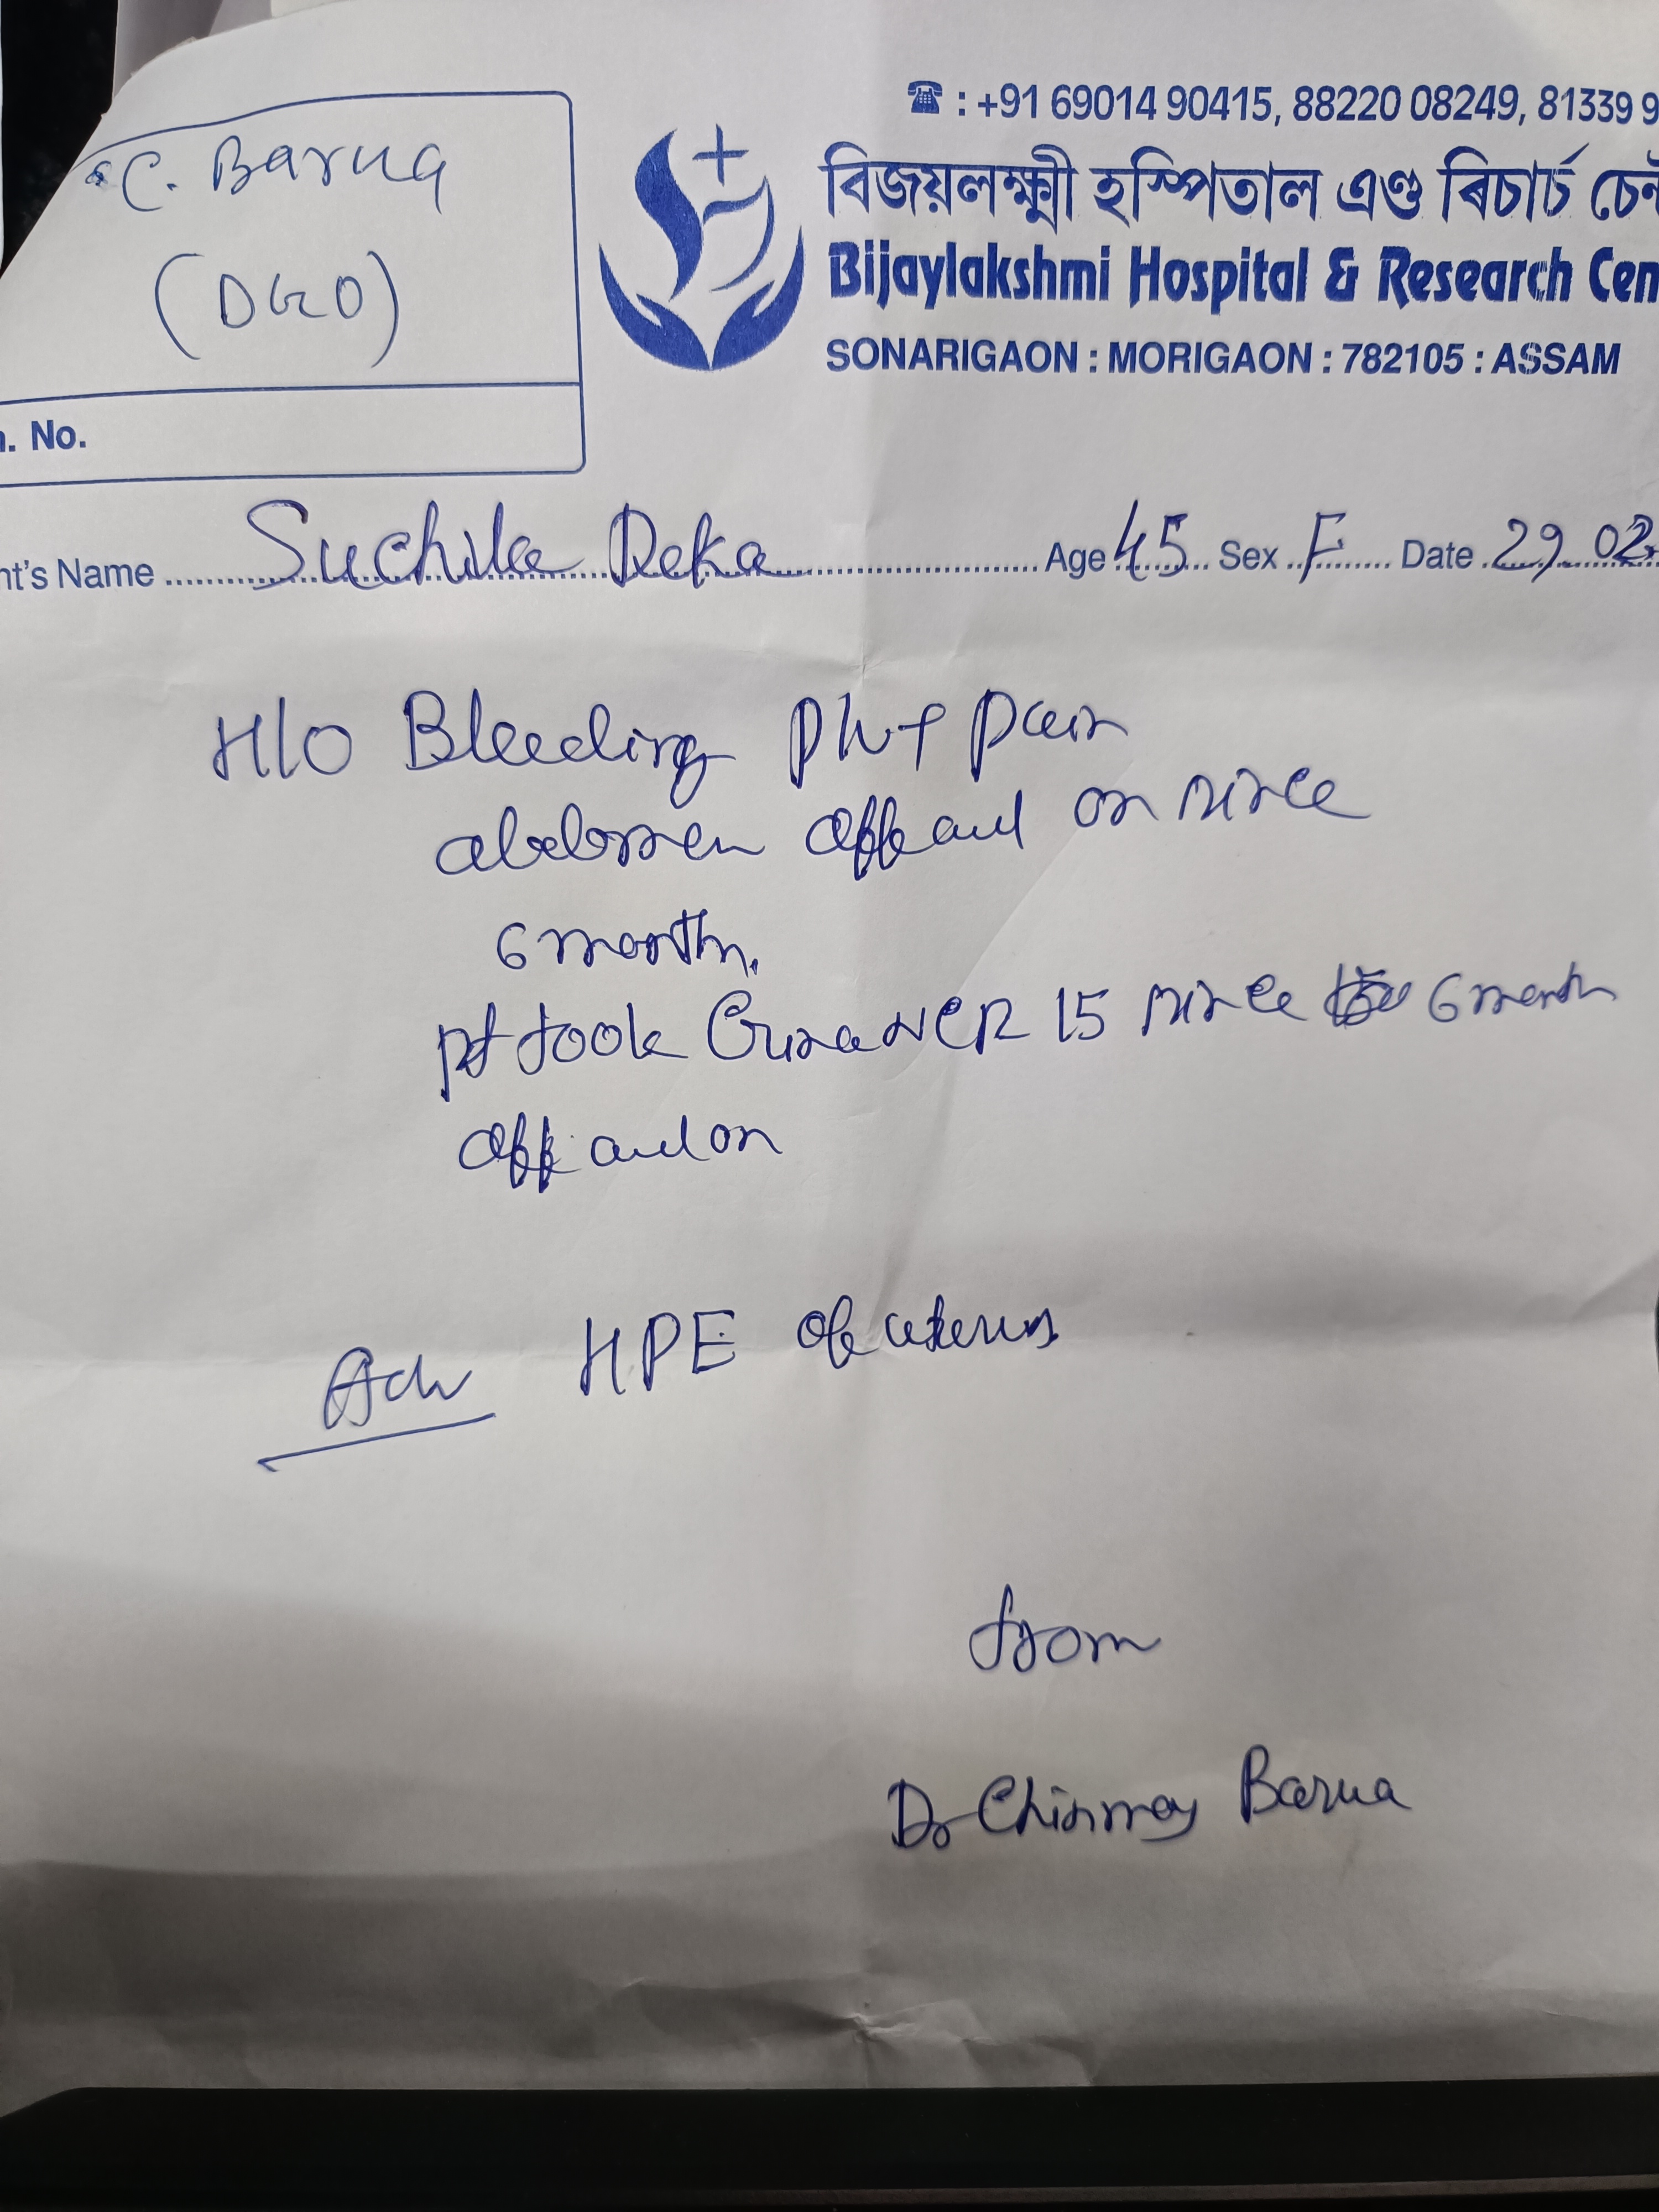 C. Barua
(DGO)
: +91 69014 90415, 88220 08249, 81339 9
বিজয়লক্ষ্মী হস্পিতাল এণ্ড ৰিচাৰ্চ চেন্
Bijaylakshmi Hospital & Research Cen
SONARIGAON : MORIGAON : 782105 : ASSAM
. No.
nt's Name Suchila Deka Age 45 Sex F Date 29.02
H/O Bleeding P/V + pain
abdomen off and on since
6 month.
pt took CR 15 since 6 month
off and on
Adv HPE of uterus
from
Dr Chinmoy Barua